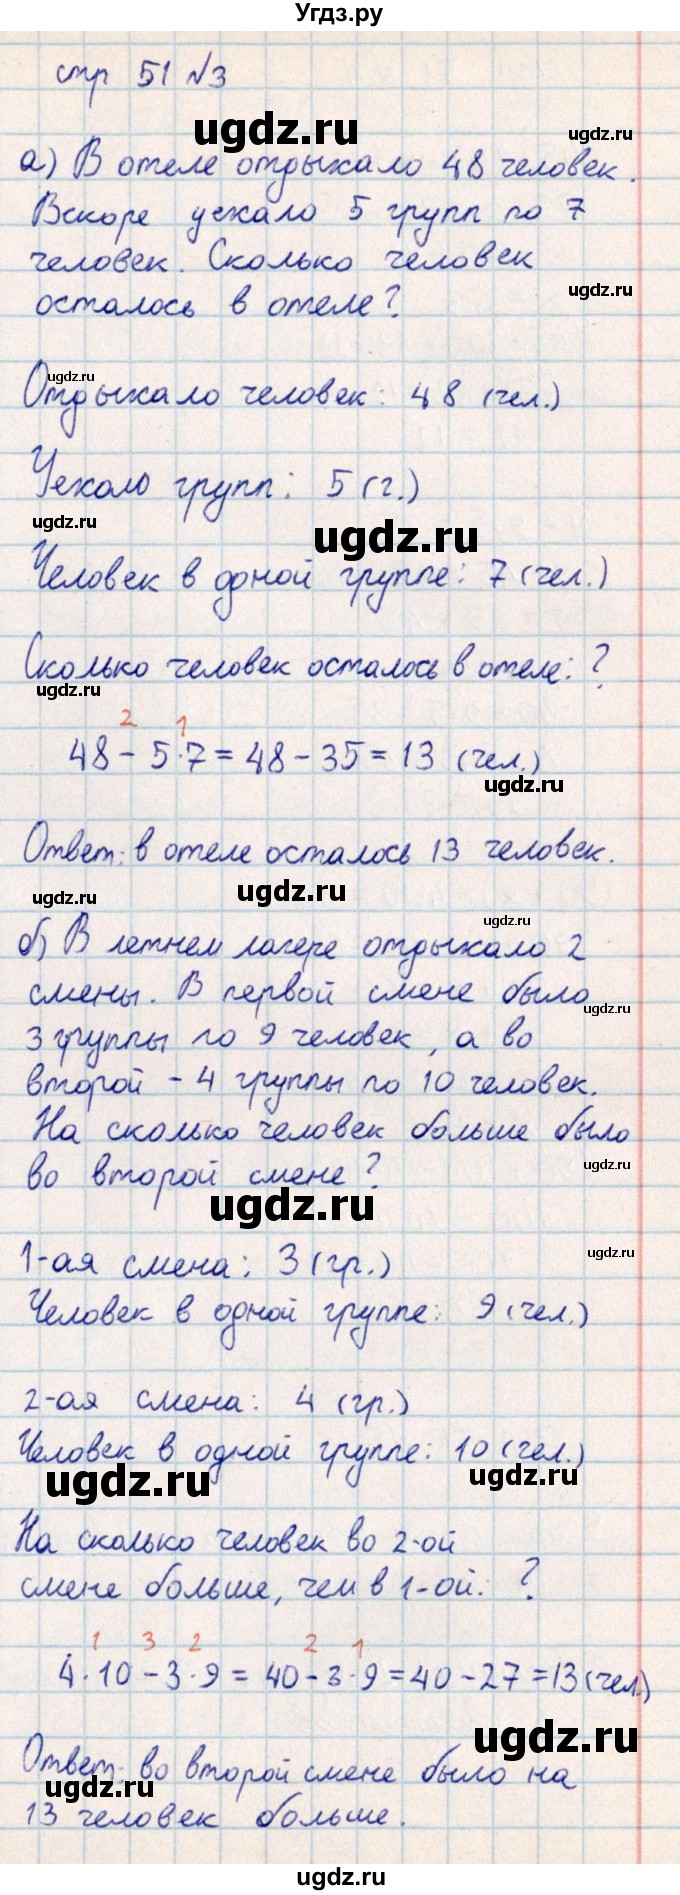 Угдз.ру
стр 51 №3
ugdz.ru
ugdz.ru
а) В отеле отдыхало 48 человек.
Вскоре уехало 5 групп по 7
человек. Сколько человек
ugdz.ru
осталось в отеле?
ugdz.ru
Отдыхало человек: 48 (чел.)
Уехало групп: 5 (г.)
ugdz.ru
ugdz.ru
Человек в одной группе: 7 (чел.)
Сколько человек осталось в отеле: ?
ugdz.ru
2 1
48 - 5·7 = 48 - 35 = 13 (чел.)
ugdz.ru
Ответ: в отеле осталось 13 человек.
ugdz.ru
ugdz.ru
ugdz.ru
б) В летнем лагере отдыхало 2
смены. В первой смене было
ugdz.ru
3 группы по 9 человек, а во
второй - 4 группы по 10 человек.
На сколько человек больше было
ugdz.ru
во второй смене?
ugdz.ru
1-ая смена: 3 (гр.)
ugdz.ru
Человек в одной группе: 9 (чел.)
2-ая смена: 4 (гр.)
Человек в одной группе: 10 (чел.)
ugdz.ru
ugdz.ru
На сколько человек во 2-ой
смене больше, чем в 1-ой: ?
1 3 2 2 1
4·10 - 3·9 = 40 - 3·9 = 40 - 27 = 13 (чел)
ugdz.ru
Ответ: во второй смене было на
ugdz.ru
13 человек больше.
ugdz.ru